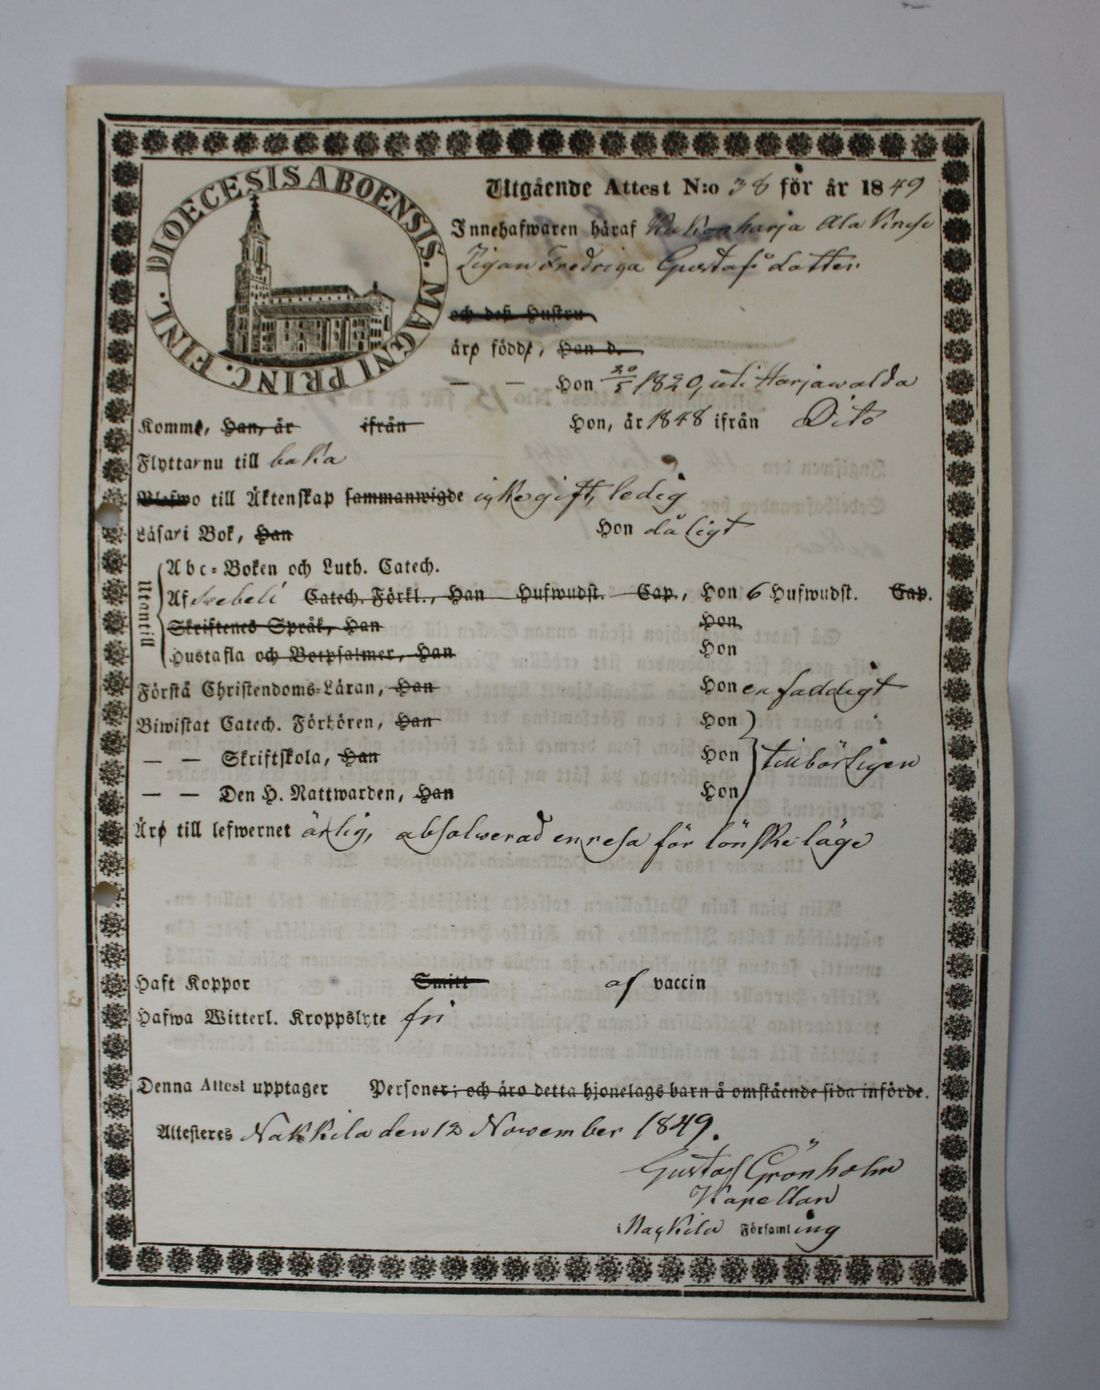 DIOECESIS ABOENSIS. MAGNI PRINC. FINL.
Utgående Attest N:o 38 för år 1849
Innehafwaren häraf Kukonharja Ala Knuse
Pigan Fredriga Gustafsdotter
och deß Hustru
äro födde, Han d.
— — Hon 20/5 1829, uti Harjawalda
Komme, Han, år ifrån Hon, år 1848 ifrån Dito
Flyttar nu till baka
Blefwo till Äktenskap sammanwigde icke gift, ledig
Läsa i Bok, Han Hon dåligt
Utantill
Abc-Boken och Luth. Catech.
Af Svebeli Catech. Förkl., Han Hufwudst. Cap., Hon 6 Hufwudst. Cap.
Skriftenes Språk, Han Hon
Hustafla och Botpsalmer, Han Hon
Förstå Christendoms-Läran, Han Hon enfaldigt
Biwistat Catech. Förhören, Han Hon
— — Skriftskola, Han Hon tillbörligen
— — Den H. Nattwarden, Han Hon
Äro till lefwernet ärlig, absolwerad en resa för lönskeläge
Haft Koppor Smitt af vaccin
Hafwa Witterl. Kroppslyte fri
Denna Attest upptager Personer; och äro detta hjonelags barn å omstående sida införde.
Attesteres Nakkila den 12 Nowember 1849.
Gustaf Grönholm
Kapellan
i Nakkila Församling